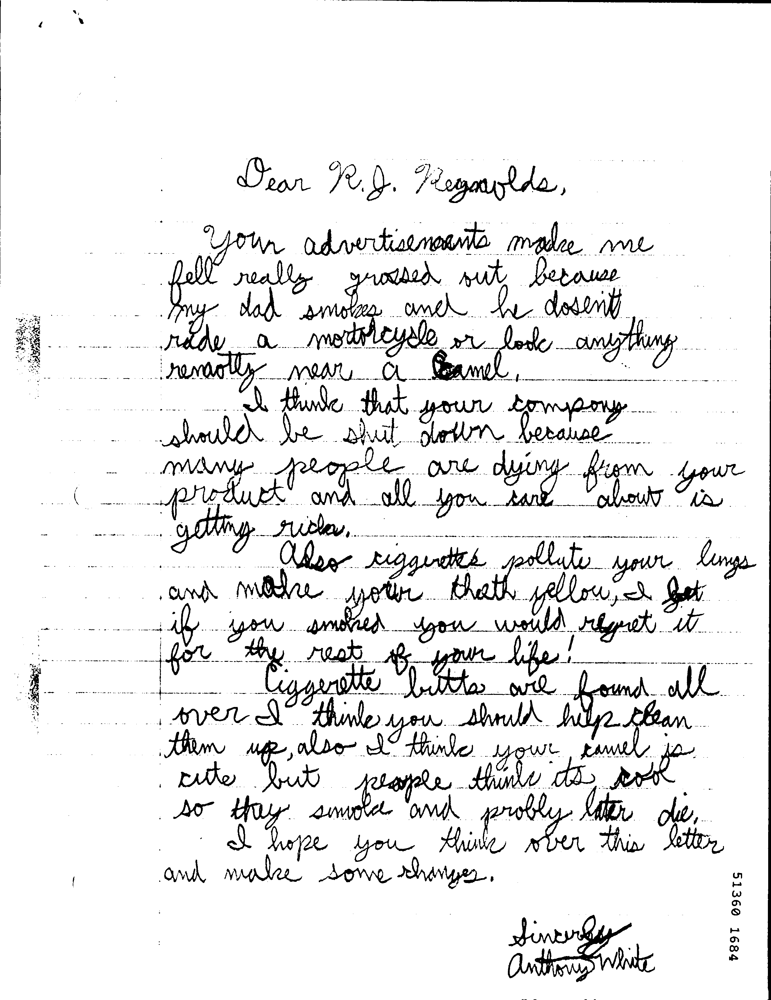 Dear R.J. Regnolds,
Your advertisements make me
fell really grossed out because
my dad smokes and he dosent
ride a mortorcycle or look anything
remaotly near a Camel,
I think that your company
should be shut down because
many people are dying from your
product and all you care about is
getting rich.
Also ciggerette's pollute your lungs
and make your theeth yellow, I bet
if you smoked you would regret it
for the rest of your life!
Ciggerette butts are found all
over I think you should help clean
them up, also I think your camel is
cute but people think its cool
so they smoke and probly later die.
I hope you think over this letter
and make some changes.
Sincerly
Anthony White
51360 1684